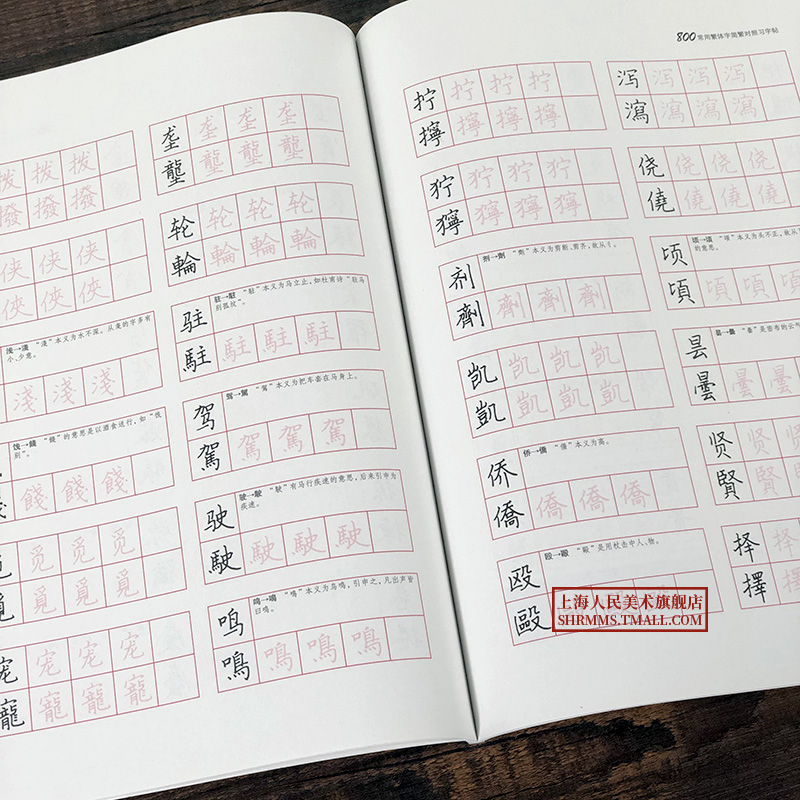 拨拨
撥撥撥
侠侠侠
俠俠俠
浅→淺 "淺"本义为水不深，从戔的字多有
小、少意。
淺淺淺
饯→餞 "餞"的意思是以酒食送行，如"饯
别"。
餞餞餞
觅觅觅觅
覓覓覓覓
宠宠宠宠
寵寵寵寵
垄垄垄垄
壟壟壟壟
轮轮轮轮
輪輪輪輪
驻→駐 "駐"本义为马立止，如杜甫诗"驻马
别孤坟"。
驻
駐駐駐駐
驾→駕 "駕"本义为把车套在马身上。
驾
駕駕駕駕
驶→駛 "駛"有马行疾速的意思，后来引申为
疾速。
驶
駛駛駛駛
鸣→鳴 "鳴"本义为鸟鸣，引申之，凡出声皆
曰鸣。
鸣
鳴鳴鳴鳴
800常用繁体字简繁对照习字帖
拧拧拧拧
擰擰擰擰
狞狞狞狞
獰獰獰獰
剂→劑 "劑"本义为剪断、剪齐，故从刂。
剂
劑劑劑劑
凯凯凯凯
凱凱凱凱
侨→僑 "僑"本义为高。
侨
僑僑僑僑
殴→毆 "毆"是用杖击中人、物。
殴
毆
泻泻泻泻
瀉瀉瀉瀉
侥侥侥侥
僥僥僥僥
顷→頃 "頃"本义为头不正，故从
的意思。
顷
頃頃頃頃
昙→曇 "曇"是密布的云
昙
曇曇曇
贤贤贤
賢賢賢
择择
擇擇
上海人民美术旗舰店
SHRMMS.TMALL.COM